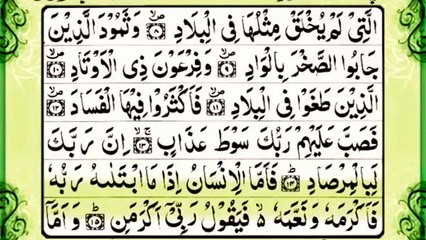 الَّتِيْ لَمْ يُخْلَقْ مِثْلُهَا فِي الْبِلَادِ ۝٨ وَثَمُوْدَ الَّذِيْنَ
جَابُوا الصَّخْرَ بِالْوَادِ ۝٩ وَفِرْعَوْنَ ذِي الْاَوْتَادِ ۝١٠
الَّذِيْنَ طَغَوْا فِي الْبِلَادِ ۝١١ فَاَكْثَرُوْا فِيْهَا الْفَسَادَ ۝١٢
فَصَبَّ عَلَيْهِمْ رَبُّكَ سَوْطَ عَذَابٍ ۝١٣ اِنَّ رَبَّكَ
لَبِالْمِرْصَادِ ۝١٤ فَاَمَّا الْاِنْسَانُ اِذَا مَا ابْتَلٰىهُ رَبُّهٗ
فَاَكْرَمَهٗ وَنَعَّمَهٗ ۙ فَيَقُوْلُ رَبِّيْۤ اَكْرَمَنِ ۝١٥ وَاَمَّاۤ